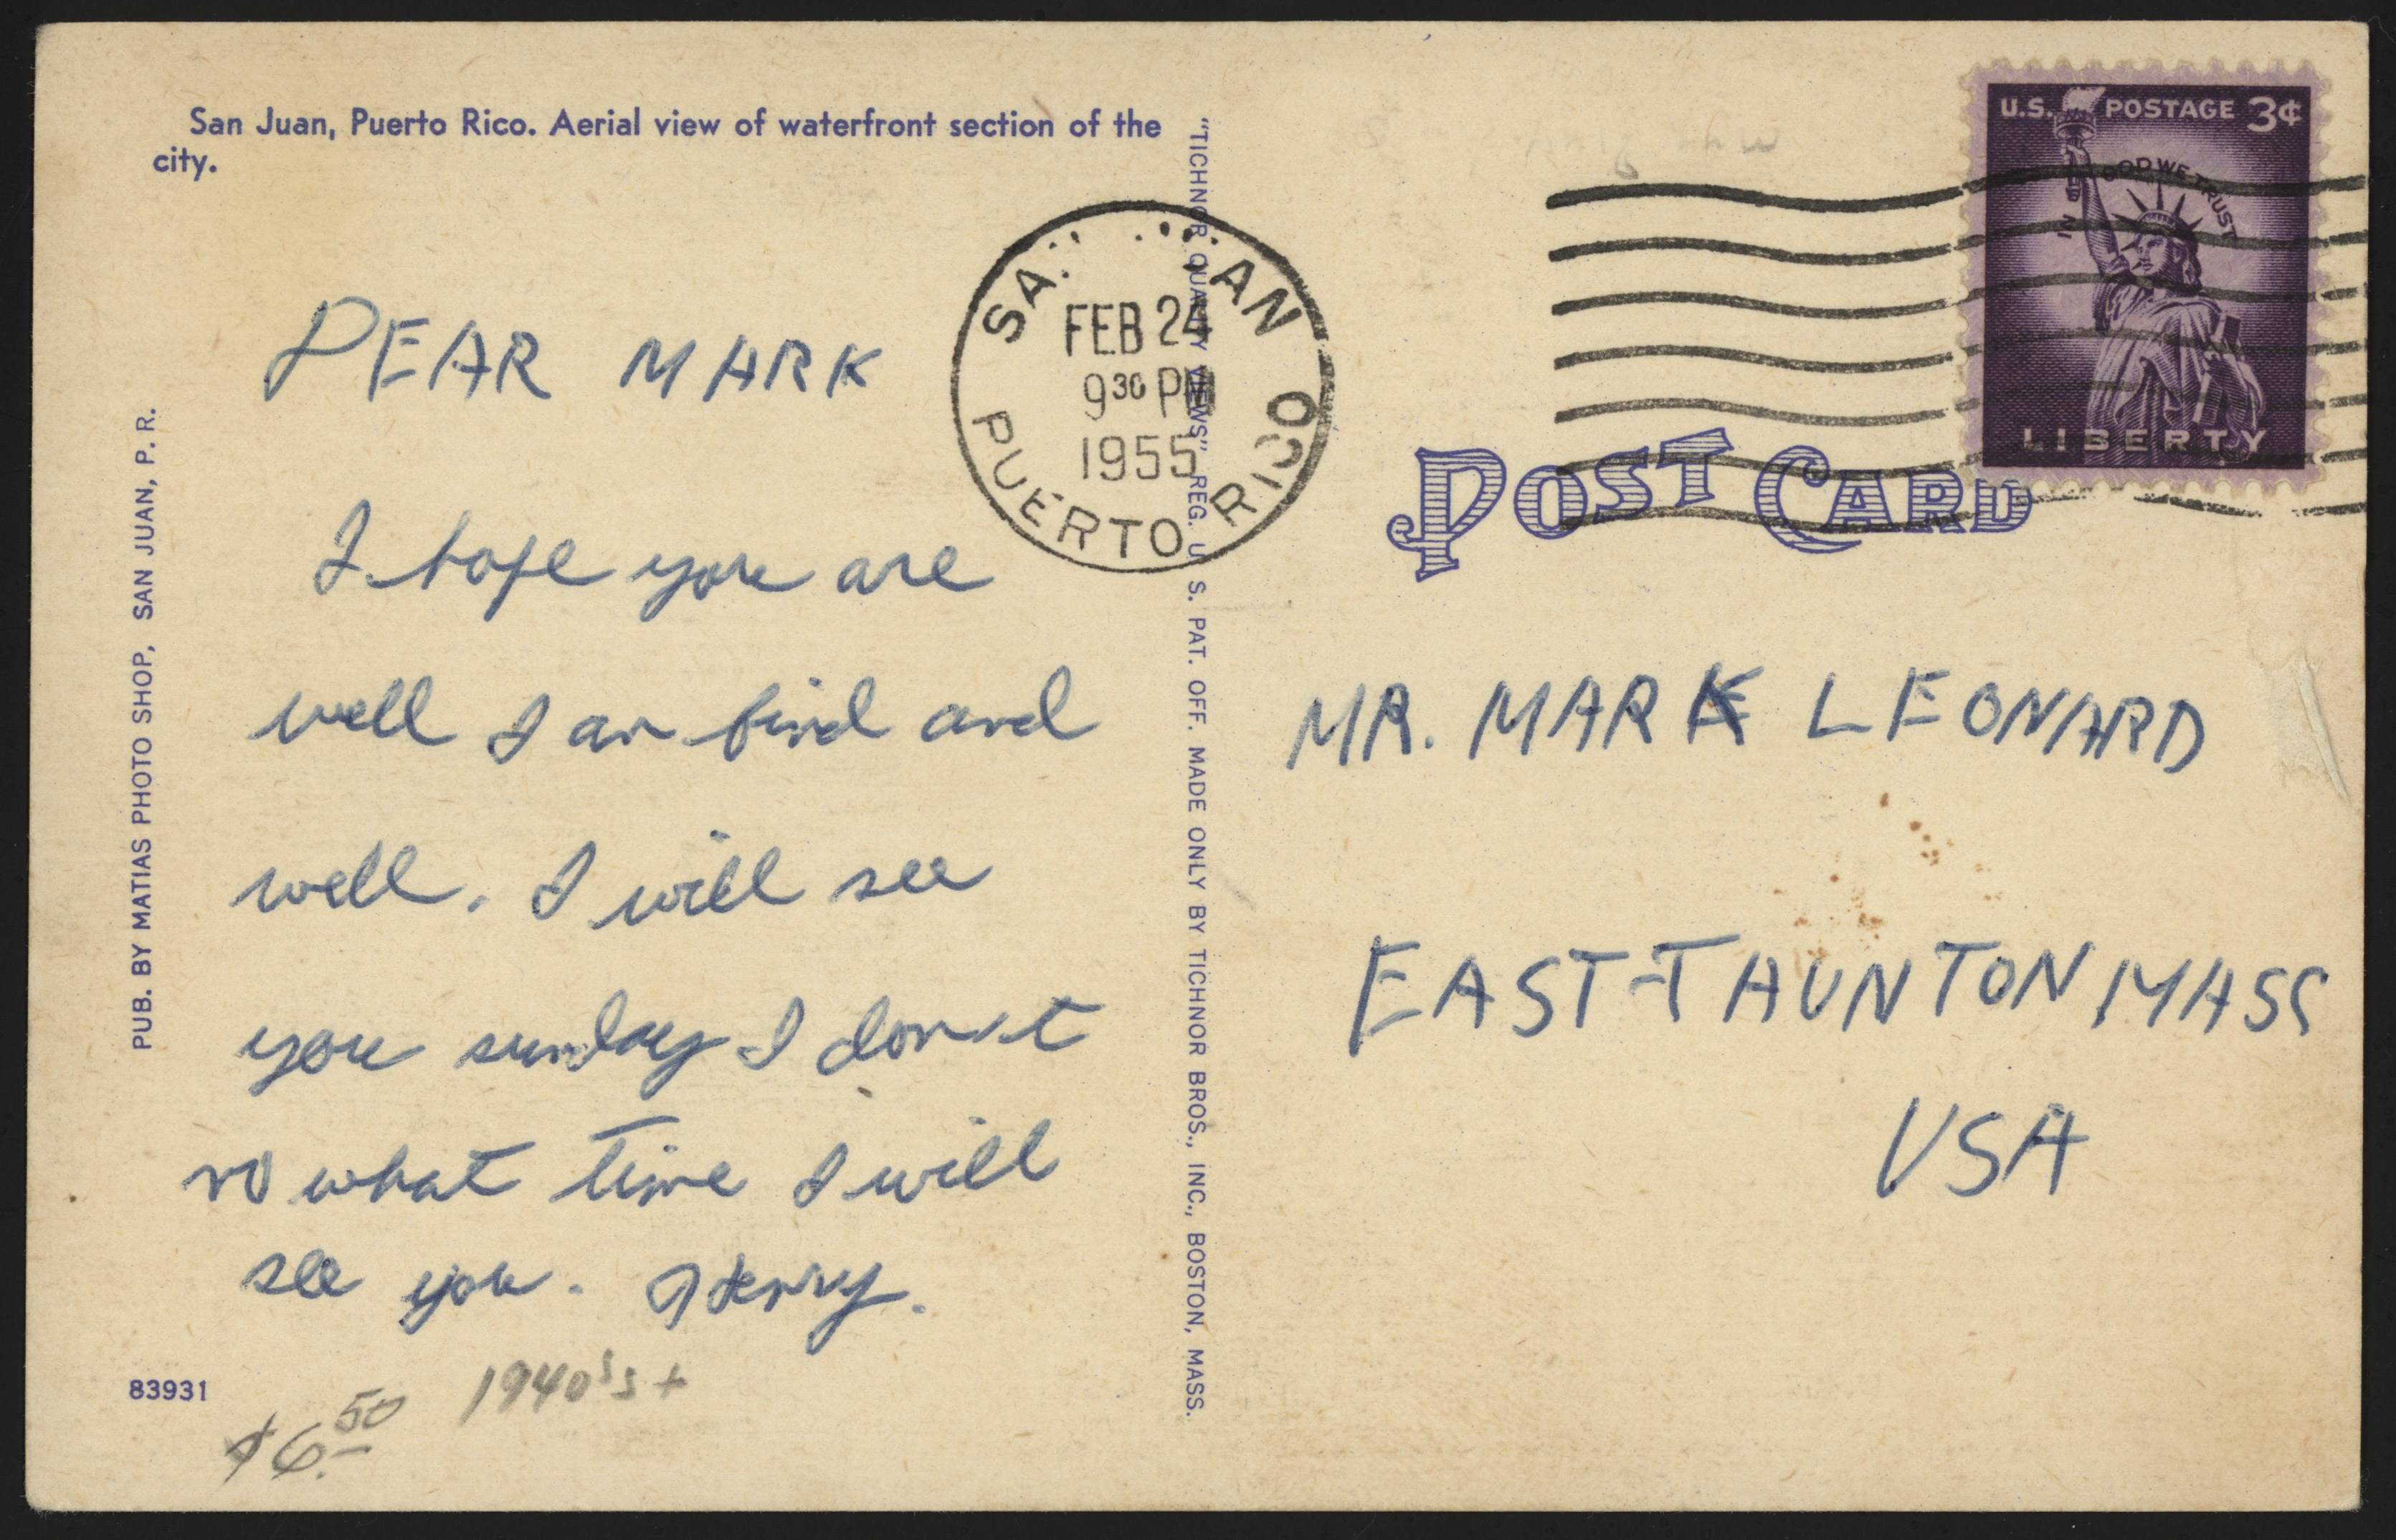 San Juan, Puerto Rico. Aerial view of waterfront section of the
city.
PUB. BY MATIAS PHOTO SHOP, SAN JUAN, P. R.
DEAR MARK
I hope you are
well I am find and
well. I will see
you sunday I don't
no what time I will
see you. Henry.
83931
$6.50
1940's +
"TICHNOR QUALITY VIEWS", REG. U. S. PAT. OFF. MADE ONLY BY TICHNOR BROS., INC., BOSTON, MASS.
SA AN
FEB 24
9 30 PM
1955
PUERTO RICO
U.S. POSTAGE 3¢
IN GOD WE TRUST
LIBERTY
POST CARD
MR. MARK LEONARD
EAST-TAUNTON MASS
USA